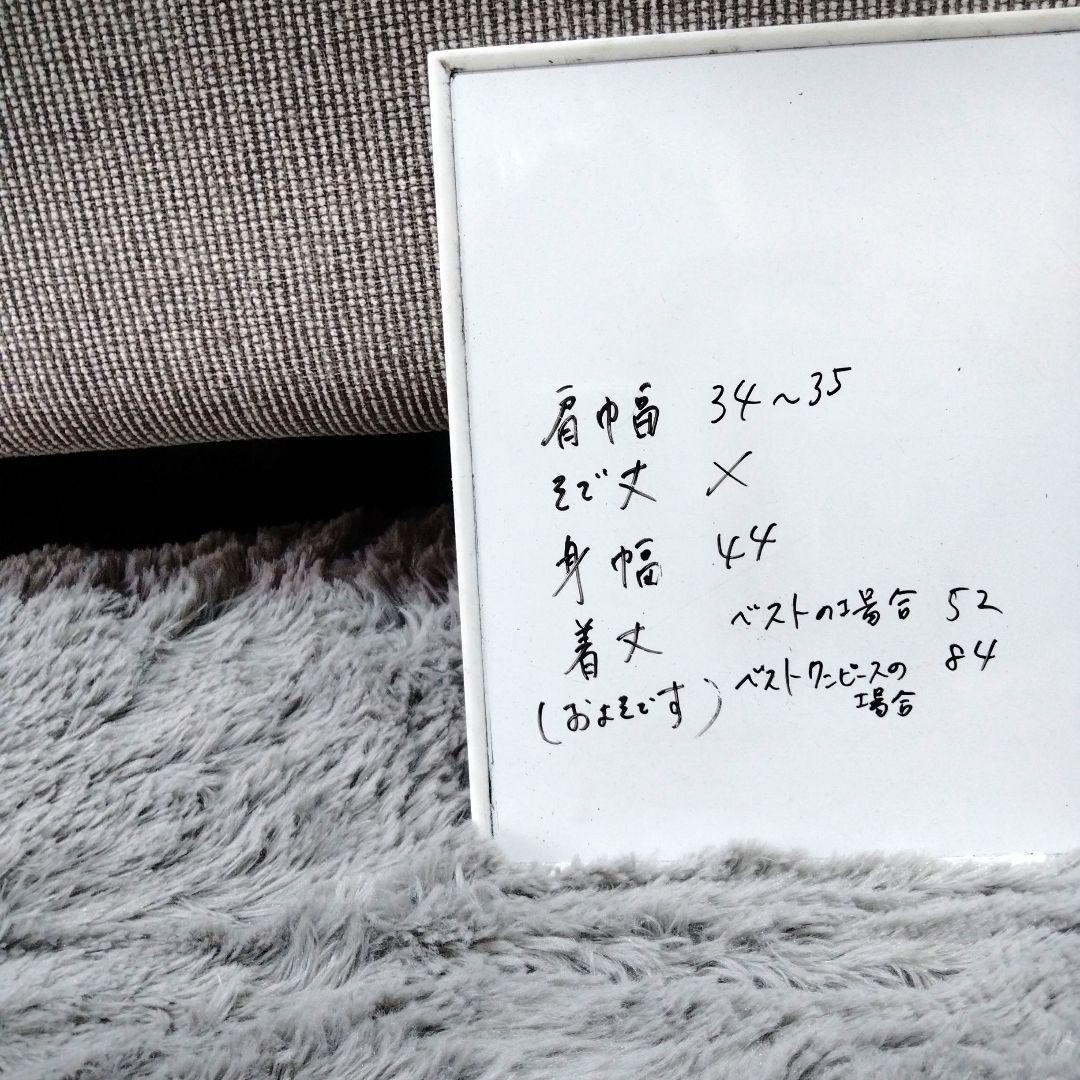 肩幅 34〜35
そで丈 ×
身幅 44
着丈 ベストの場合 52
(およそです) ベストワンピースの場合 84